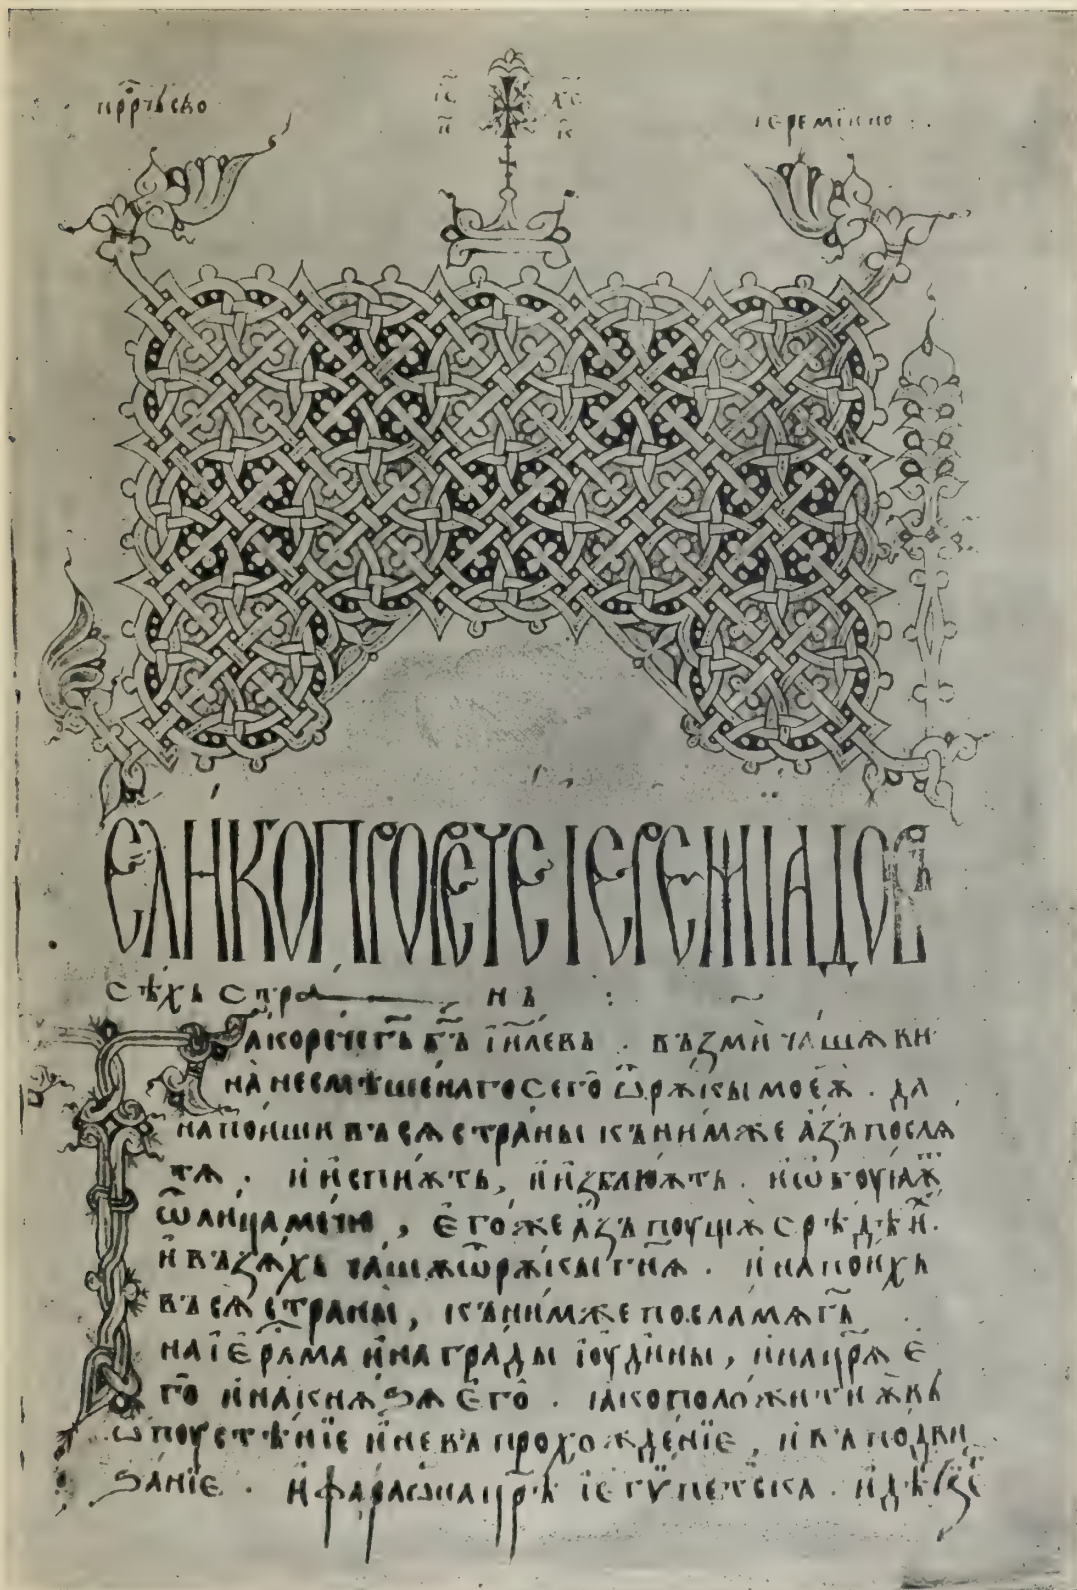 пррⷪ҇чьство
і҃с х҃с
н҃ к҃
іереміино :
ЕЛИКОПРОРЕЧЕІЕРЕМІАДОВ
сѣхь стра нь :
Такоречегь҃ бь҃ і҃илевь . възми чашѫ ви
на несмѣшенаго сего҃ ѿ рѫкы моеѫ . да
напоиши въсѧ страны къ нимже азь послѧ
тѧ . и испиѫть, и изблюѫть .
ѿ лица мечю , егоже азь поущѫ срѣдѣ и҃х .
и възѧхь чашѫ ѿ рѫкы гн҃ѧ . и напоихь
въсѧ страны, къ нимже посла мѧ гь҃
на іер҃лма и на грады іоудины, и на цр҃ѧ е
го҃ и на кнѧѕѧ его҃ . ꙗко положити ѫ вь
ѡпоустѣніе и невъпрохожденіе , и въ подви
ѕаніе . и фараѡна цр҃ѣ егѵпетьска .